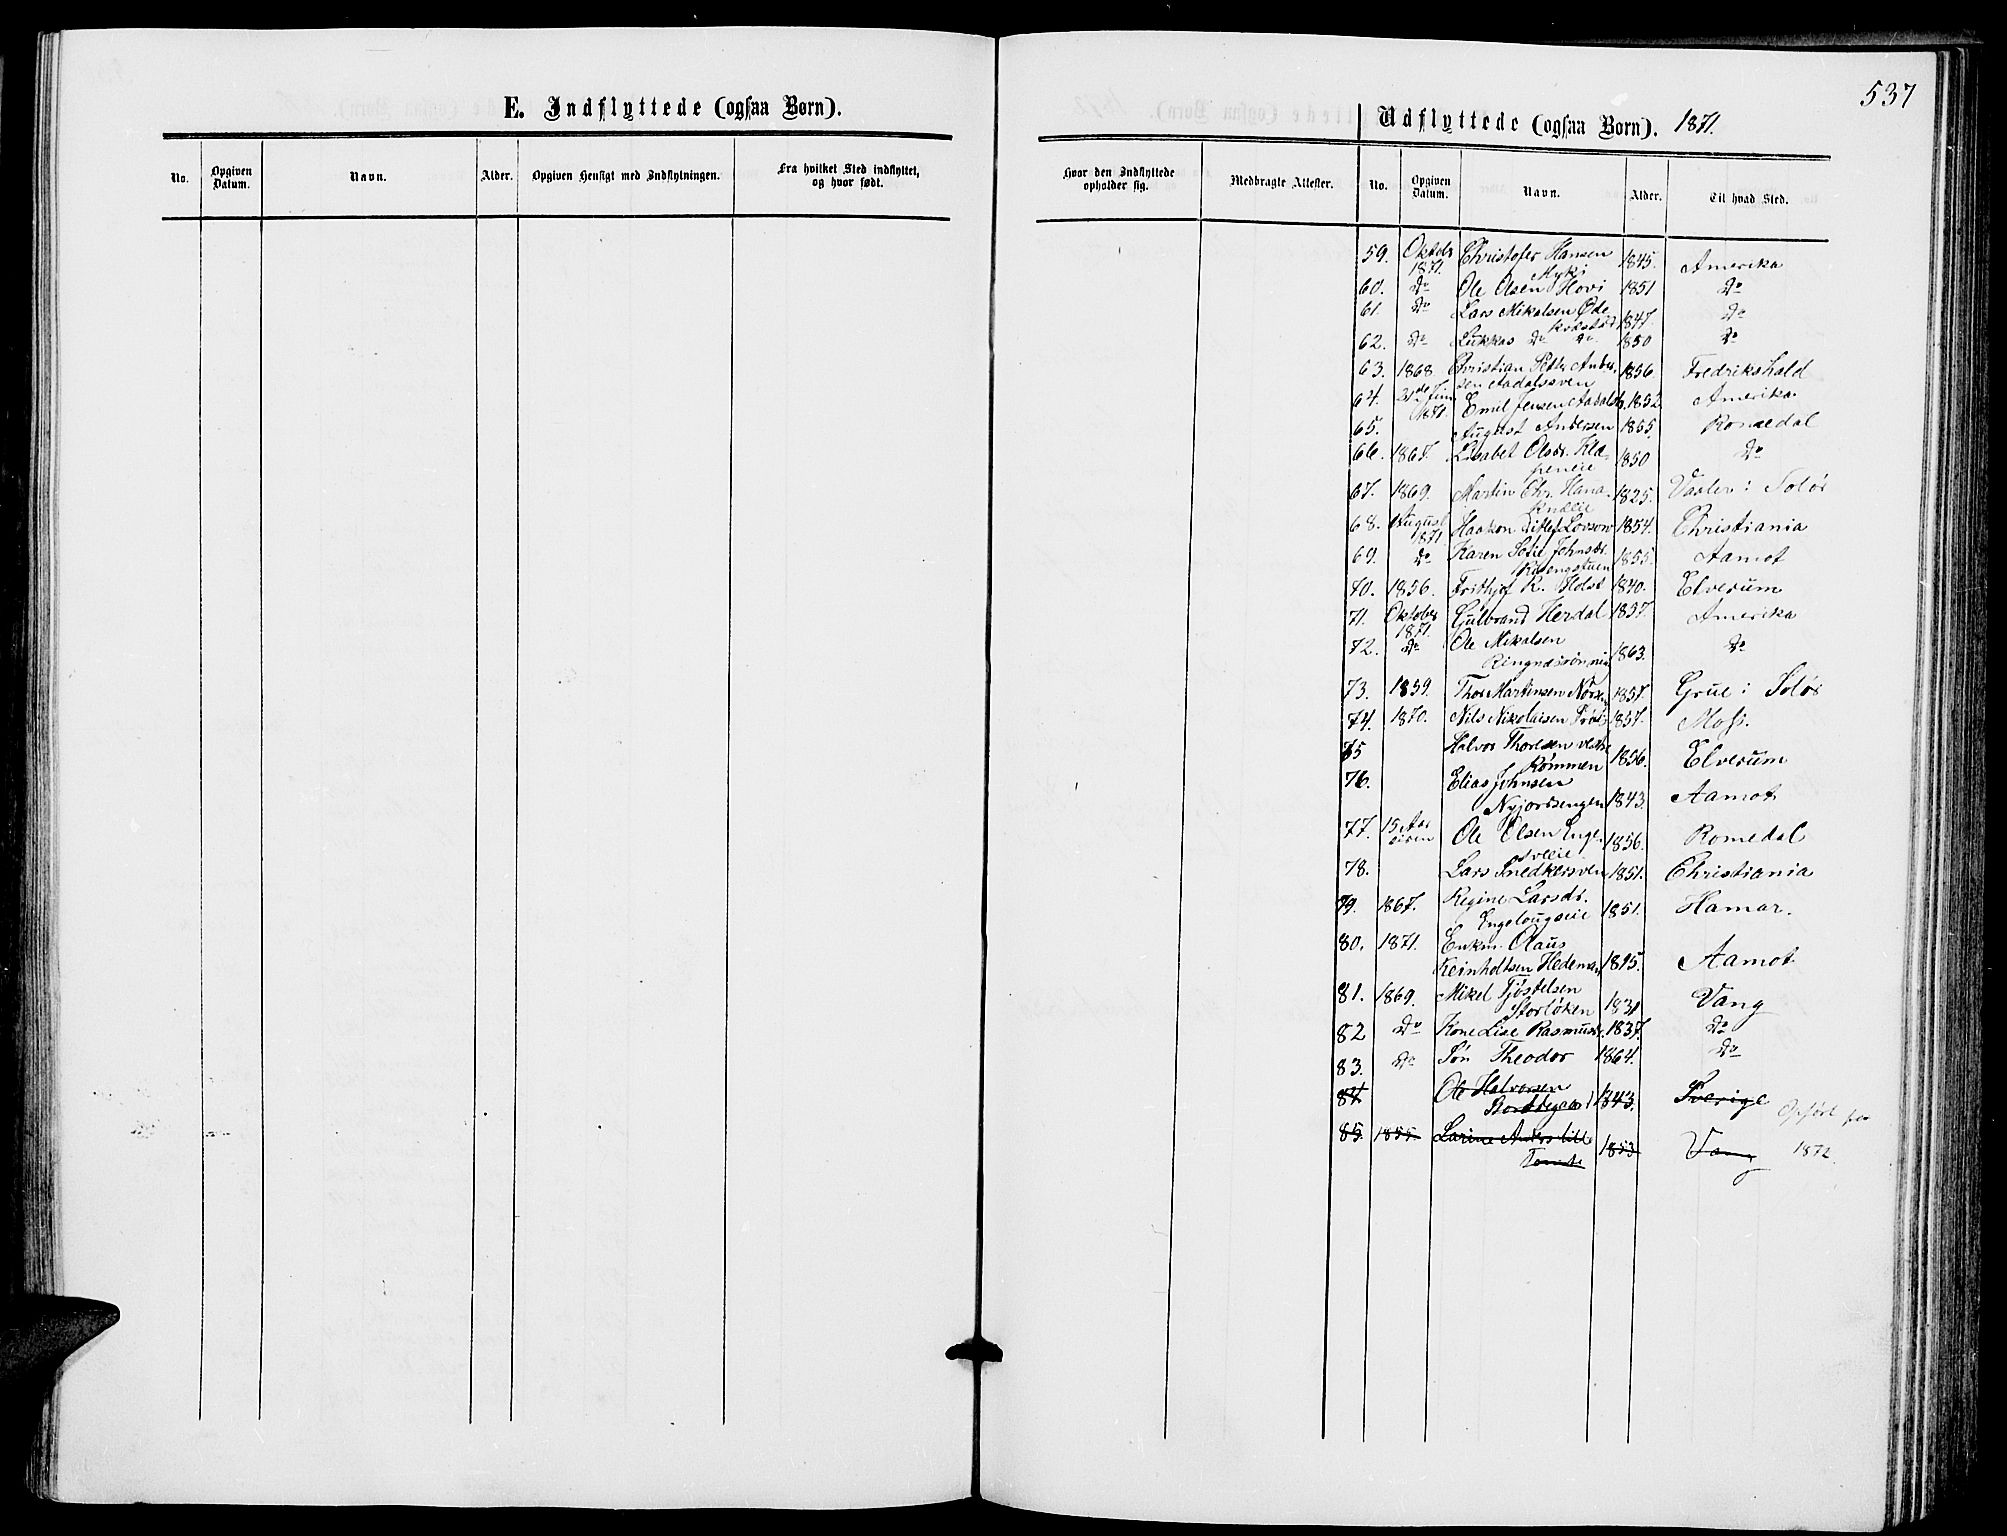 E. Indflyttede (ogsaa Børn).
No.
Opgiven Datum.
Navn.
Alder.
Opgiven Hensigt med Indflytningen.
Fra hvilket Sted indflyttet, og hvor født.
537
Udflyttede (ogsaa Børn). 1871.
Hvor den Indflyttede opholder sig.
Medbragte Attester.
No.
Opgiven Datum.
Navn.
Alder.
Til hvad Sted.
59. Oktober 1871. Christofer Hansen Myki 1845. Amerika
60. do Ole Olsen Hovi 1851 do
61. do Lars Mikalsen Øde 1847. do
62. do Lukkas do do 1850 do
63. 1868. Christian Petter Anders. 1856. Fredrikshald
64. 1871. Emil Jensen 1852. Amerika
65. August Andersen 1855. Romedal
66. 1867. Lisabet Olsdr. 1850 do
67. 1869. Martin Chr. 1825. Vaaler i Solør
68. August 1871. Haaken Larsen 1854. Christiania
69. do Karen Sofie Johnsdr. 1855. Aamot
70. 1856. Frithjof R. Holst 1840. Elverum
71. Oktober 1871. Gulbrand Herdal 1857. Amerika
72. do Ole Mikalsen 1863. do
73. 1859. Thor Martinsen 1857. Grue i Solør
74. 1870. Nils Nikolaisen 1857. Moss.
75 Halvor Thoresen vestre Rømmen 1856. Elverum
76. Elias Johnsen Nyjordsengen 1843. Aamot
77. 15 Ole Olsen 1856. Romedal
78. Lars Snedkersven 1851. Christiania
79. 1867. Regine Larsdr. Engelougseie 1851. Hamar.
80. 1871. Enkm. Olaus
Reinholtsen Hedeman 1815. Aamot
81. 1869. Mikel Tjøstelsen
Storløken 1831 Vang
82 do Kone Lise Rasmusdr. 1837. do
83. do Søn Theodor 1864. do
84 Ole Halvorsen 1843. Sverige
85. 1855. Larine Anders lille Tomte 1853 Vang
Opført paa
1872.